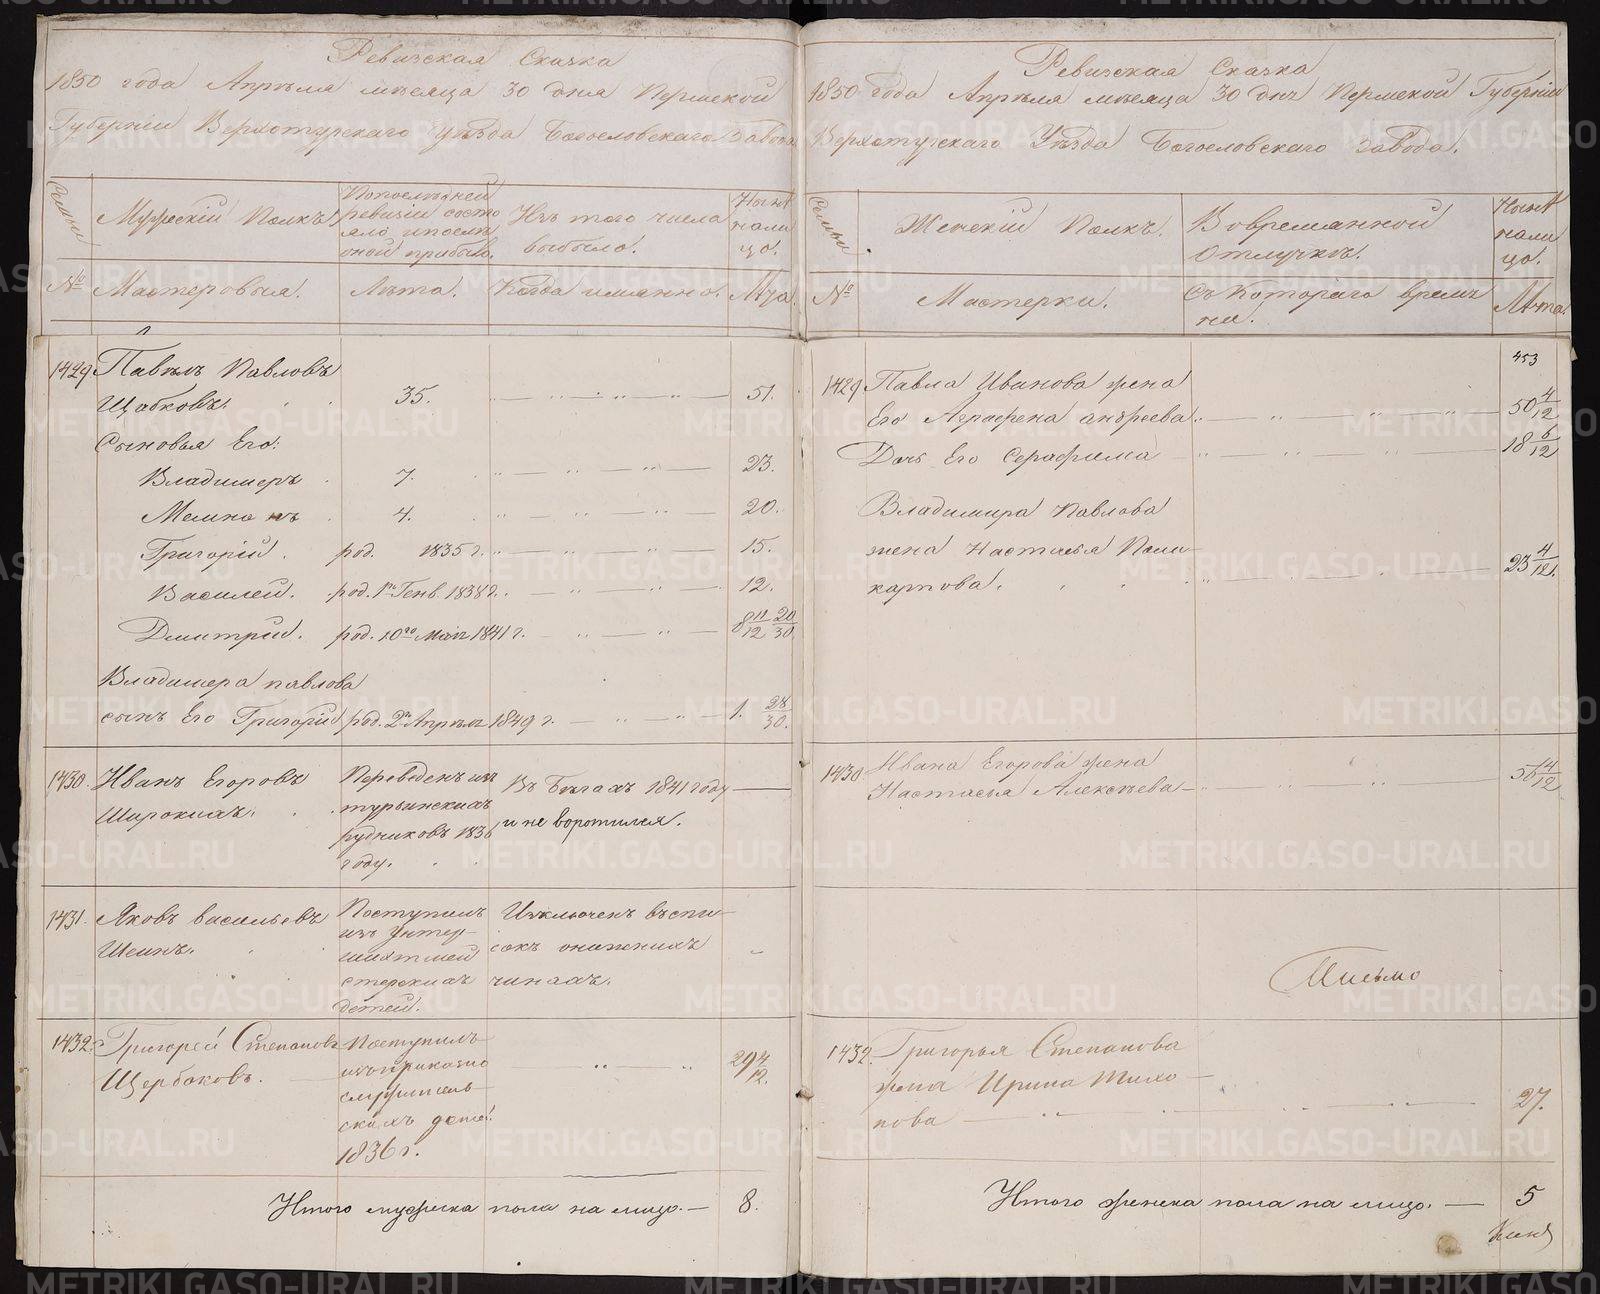 Ревизская Сказка
1850 года Апрѣля мѣсяца 30 дня Пермской
Губерніи Верхотурскаго уѣзда Богословскаго Завода
Семьи
Мужескій Полкъ
По последней
ревизіи состо
яло и после
оной прибыло.
Изъ того числа
выбыло.
Нынѣ
нали
цо.
№
Мастеровыя.
Лѣта.
Когда имянно.
Лѣта.
1429
Павелъ Павловъ
Щабковъ.
35.
51.
Сыновья Его:
Владимеръ
7.
23.
4.
20.
Григорій.
род. 1835 г.
15.
Василей.
род. 1го Генв. 1838 г.
12.
Дмитрій.
род. 10го Мая 1841 г.
8 11/12 20/30
Владимера павлова
сынъ Его Григорій
род. 2го Апрѣля 1849 г.
1. 28/30.
1430
Иванъ Егоровъ
Широкихъ.
Переведенъ изъ
турьинскихъ
рудниковъ 1836
году.
Въ Бѣгахъ 1841 году
и не воротился.
1431.
Яковъ Васильевъ
Шеинъ.
Поступилъ
изъ Унтер-
шихтмей
стерскихъ
детей.
Изключенъ въ спи-
сокъ о нижнихъ
чинахъ.
1432.
Григорей Степановъ
Щербаковъ.
Поступилъ
изъ приказно
служитель
скихъ детей
1836 г.
29 4/12.
Итого мужеска пола на лицо. — 8.
Ревизская Сказка
1850 года Апрѣля мѣсяца 30 дня Пермской Губерніи
Верхотурскаго Уѣзда Богословскаго Завода.
Семьи
Женскій Полкъ.
Вовременной
отлучкѣ.
Нынѣ
нали
цо.
№
Мастерки.
Съ Котораго время
ни.
Лѣта.
453
1429
Павла Иванова жена
Его Аграфена андреева.
50 4/12
Дочь Его Серафима
18 6/12
Владимира Павлова
жена Настасья Поли-
карпова.
23 4/12.
1430
Ивана Егорова жена
Настасья Алексѣева
56 4/12
1432.
Григорья Степанова
жена Ирина Тихо-
нова
27.
Итого женска пола на лицо. — 5
METRIKI.GASO-URAL.RU